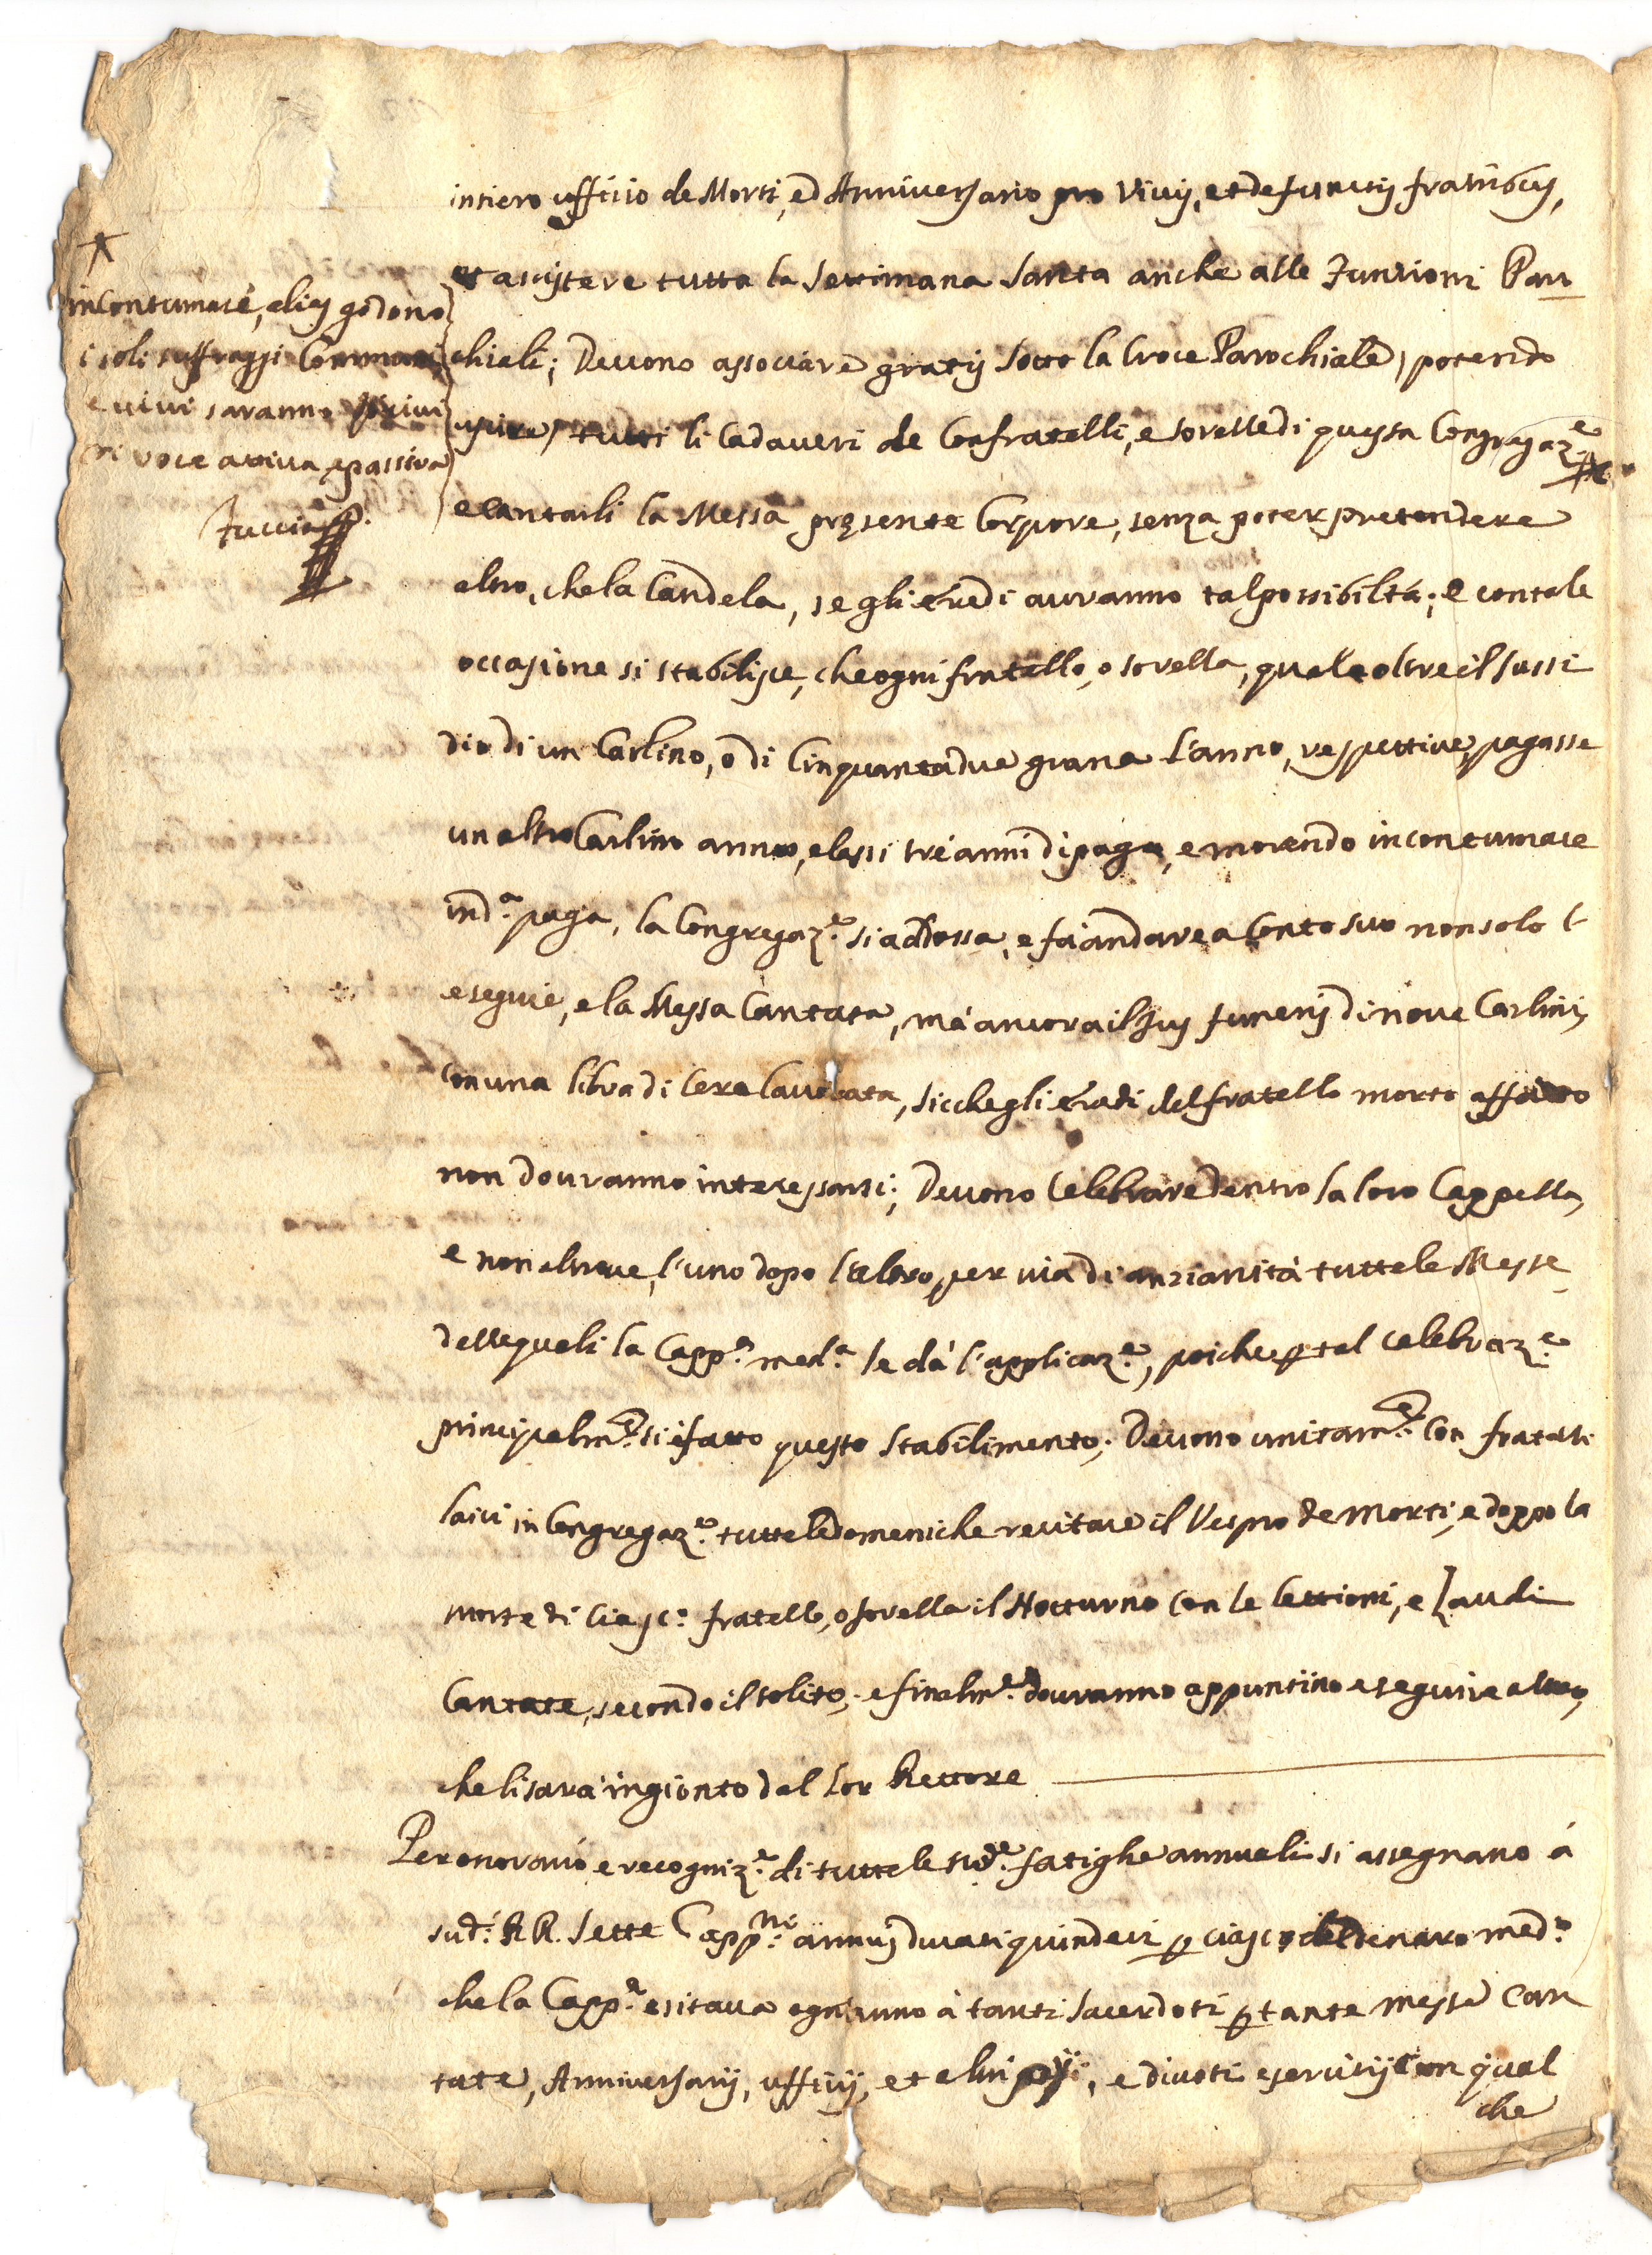 intiero ufficio de Morti, ed Anniversario pro vivis, et defunctis fratribus,
et assistere tutta la Settimana Santa anche alle Funzioni Paro
chiali; Devono associare gratis sotto la Croce Parochiale, potendo
uscire, tutti li Cadaveri de Confratelli, e sorelle di questa Congregaz.e
e cantarli la Messa presente Corpore, senza poter pretendere
altro, che la Candela, se gli eredi avranno tal possibiltà; e con tale
occasione si stabilisce, che ogni fratello, o sorella, quale oltre il sussi
dio di un Carlino, o di Cinquantadue grana l'anno, respettive, pagasse
un altro Carlino annuo, elassi trè anni di paga, e morendo in contumace
in d.a paga, la Congregaz.e si addossa, e fà andare a conto suo non solo l'
esequie, e la Messa Cantata, mà ancora il Jus funeris di nove Carlini,
con una libra di Cera lavorata, sicche gli eredi del fratello morto affatto
non dovranno interessarsi; Devono Celebrare dentro la loro Cappella,
e non altrove, l'uno dopo l'altro, per via di anzianità tutte le Messe
delle quali la Capp.a med.a le dà l'applicaz.e, poiche p tal celebraz.e
principalm.e si è fatto questo Stabilimento; Devono unitam.e con fratelli
laici in Congregaz.e tutte le domeniche recitare il Vespro de Morti, e doppo la
morte di Ciasc.o fratello, o sorella il Notturno con le lettioni, e Laudi
Cantate, secondo il solito; e finalm.e dovranno appuntino eseguire altro,
che li sarà ingionto dal lor Rettore
Per onorario e recogniz.e di tutte le sud.e fatighe annuali si assegnano à
sud.i RR. Sette Capp.ni annui ducati quindeci p ciasc.o del denaro med.o
che la Capp.a esitava ogn'anno à tanti Sacerdoti p tante messe Can
tate, Anniversarij, ufficij, et altri pij, e divoti esercitij con qual
che
in contumace, alias godono
i soli suffraggi Communi
e vivi saranno privi
di voce attiva e passiva